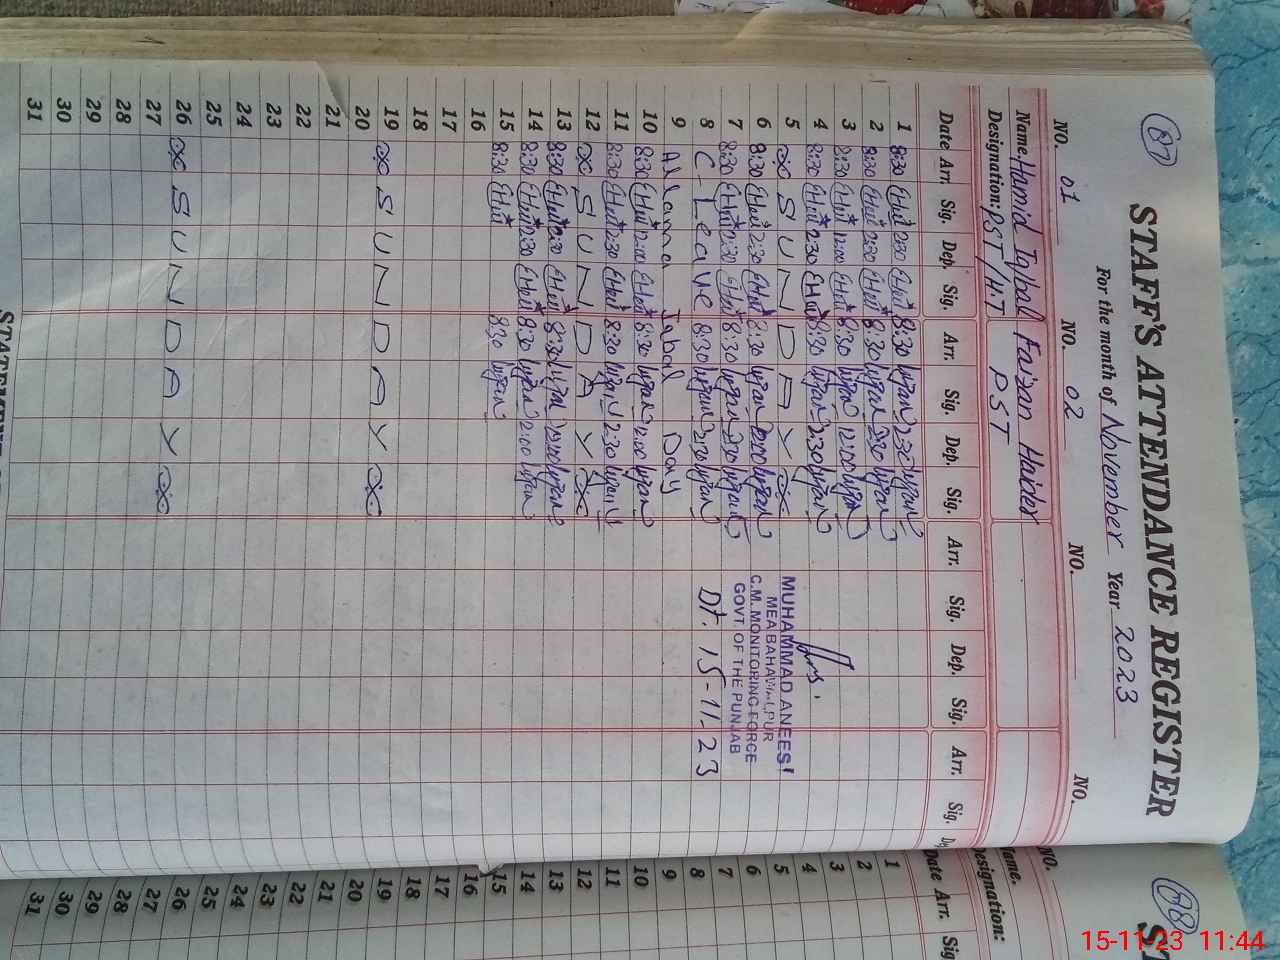 87
STAFF'S ATTENDANCE REGISTER
For the month of November Year 2023
NO. 01 NO. 02 NO. NO.
Name. Hamid Iqbal Faizan Haider
Designation: PST/HT PST
Date Arr. Sig. Dep. Sig. Arr. Sig. Dep. Sig. Arr. Sig. Dep. Sig. Arr. Sig.
1 8:30 2:30 8:30 2:30
2 8:30 2:30 8:30 2:30
3 8:30 12:00 8:30 12:00
4 8:30 2:30 8:30 2:30
5 SUNDAY
6 8:30 2:30 8:30
7 8:30 2:30 8:30 2:30
8 C-Leave 8:30 2:30
9 Allama Iqbal Day
10 8:30 12:00 8:30 12:00
11 8:30 2:30 8:30 2:30
12 SUNDAY
13 8:30 2:30 8:30
14 8:30 2:30 8:30 2:00
15 8:30 8:30
16
17
18
19 SUNDAY
20
21
22
23
24
25
26 SUNDAY
27
28
29
30
31
MUHAMMAD ANEES
MEA BAHAWALPUR
C.M. MONITORING FORCE
GOVT. OF THE PUNJAB
Dt. 15-11-23
88
NO.
Name.
Designation:
Date Arr. Sig
1
2
3
4
5
6
7
8
9
10
11
12
13
14
15
16
17
18
19
20
21
22
23
24
25
26
27
28
29
30
31
15-11-23 11:44